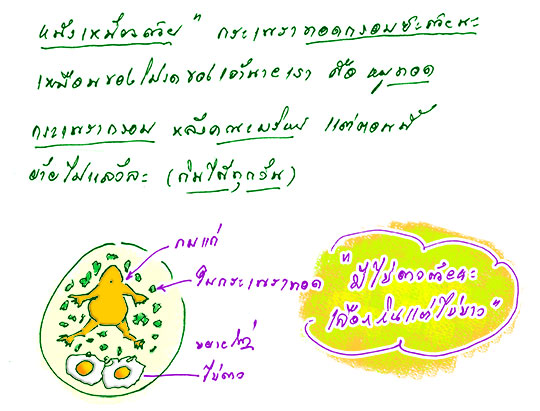 หนังเหนียวด้วย" กระเพราทอดกรอบซะด้วยนะ
เหมือนของโปรดของเจ้านายเรา คือ หมูทอด
กระเพรากรอบ หลังคณะ แต่ตอนนี้
ย้ายไปแล้วล่ะ (กินได้ทุกวัน)
กบแก่
ใบกระเพราทอด
ขยายใหญ่
ไข่ดาว
"มีไข่ดาวด้วยนะ
เลือกกินแต่ไข่ขาว"